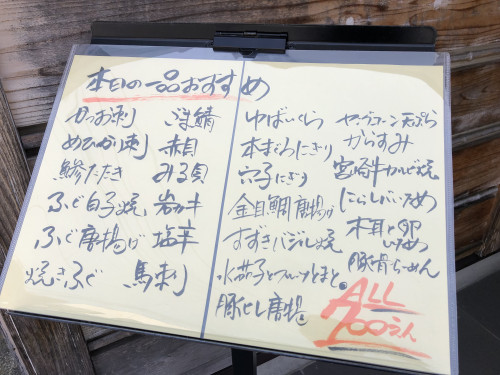 本日の一品おすすめ
かつお刺
めひかり刺
鯵たたき
ふぐ白子焼
ふぐ唐揚げ
焼きふぐ
赤目
みる貝
岩カキ
塩辛
馬刺
ゆばいくら
本まぐろにぎり
穴子にぎり
金目鯛唐揚げ
すずきバジル焼
水茄子とフルーツとまと
豚ヒレ唐揚
ヤングコーン天ぷら
からすみ
宮崎牛カルビ焼
にらレバいため
木耳と卵いため
豚骨らーめん
ALL
700えん